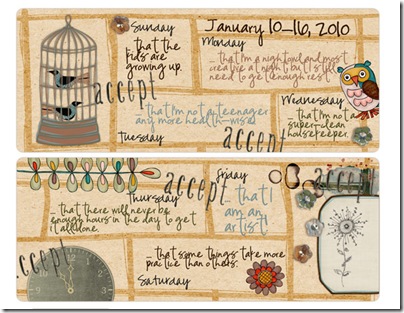 Sunday
January 10-16, 2010
...that the
kids are
growing up.
Monday
...that I'm a nightowl and most
creative at night, but I still
need to get enough rest.
accept
Wednesday
...that I'm not a
super-clean
housekeeper.
...that I'm not a teenager
any more health-wise!
Tuesday
accept
Thursday
...that there will never be
enough hours in the day to get
it all done.
accept
Friday
...that I
am an
artist!
accept
accept
...that some things take more
practice than others.
Saturday